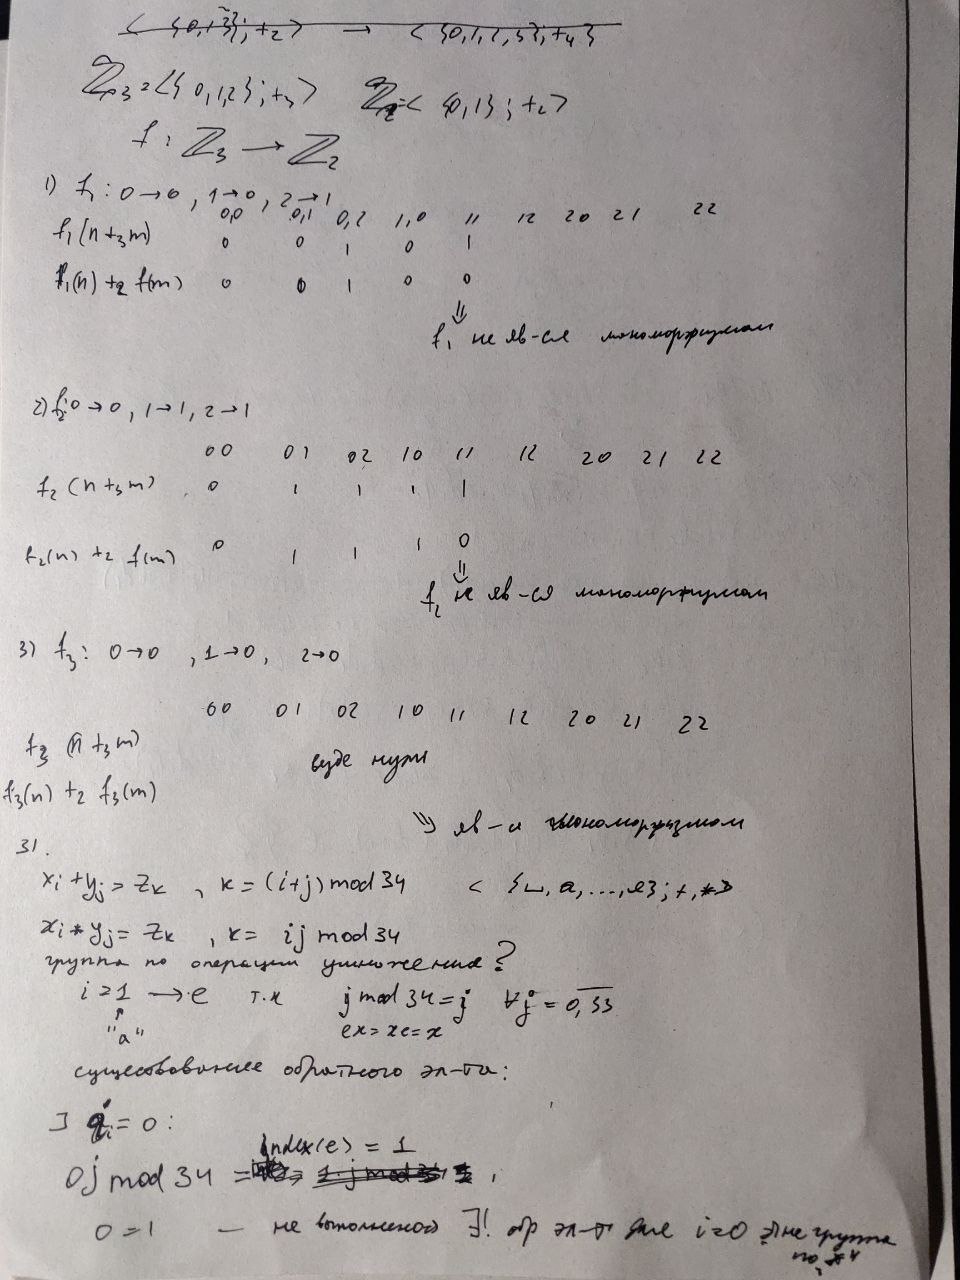 < {0,1}; +₂> → < {0,1,2,3}; +₄}
ℤ₃ = <{0,1,2}; +₃> ℤ₂ = < {0,1}; +₂>
f: ℤ₃ → ℤ₂
1) f₁: 0→0, 1→0, 2→1
0,0 0,1 0,2 1,0 11 12 20 21 22
f₁(n +₃ m) 0 0 1 0 1
f₁(n) +₂ f(m) 0 0 1 0 0
⇓
f₁ не яв-ся мономорфизмом
2) f₂: 0→0, 1→1, 2→1
00 01 02 10 11 12 20 21 22
f₂(n +₃ m) 0 1 1 1 1
f₂(n) +₂ f(m) 0 1 1 1 0
⇓
f₂ не яв-ся мономорфизмом
3) f₃: 0→0, 1→0, 2→0
00 01 02 10 11 12 20 21 22
f₃(n +₃ m)
везде нули
f₃(n) +₂ f₃(m)
⇒ яв-я мономорфизмом
31.
xᵢ + yⱼ = zₖ, k = (i+j) mod 34 < {␣, а, ..., я}; +, *>
xᵢ * yⱼ = zₖ, k = ij mod 34
группа по операции умножения?
i = 1 → e т.к j mod 34 = j ∀j = 0,33
↑
"а" ex = xe = x
существование обратного эл-та:
∃ i = 0:
index(e) = 1
0j mod 34 =
0 = 1 — не выполненой ∃! обр эл-т для i=0 ⇒ не группа
по *